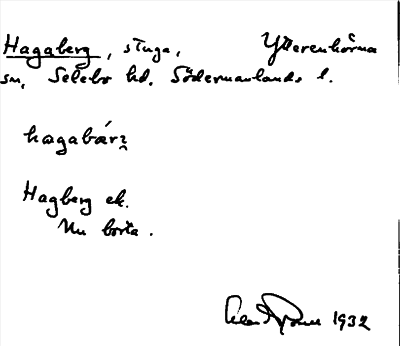 Hagaberg, stuga, Ytterenhörna
sn, Selebo hd. Södermanlands l.
hagabär̀ꝛ
Hagberg ek.
Nu borta.
1932